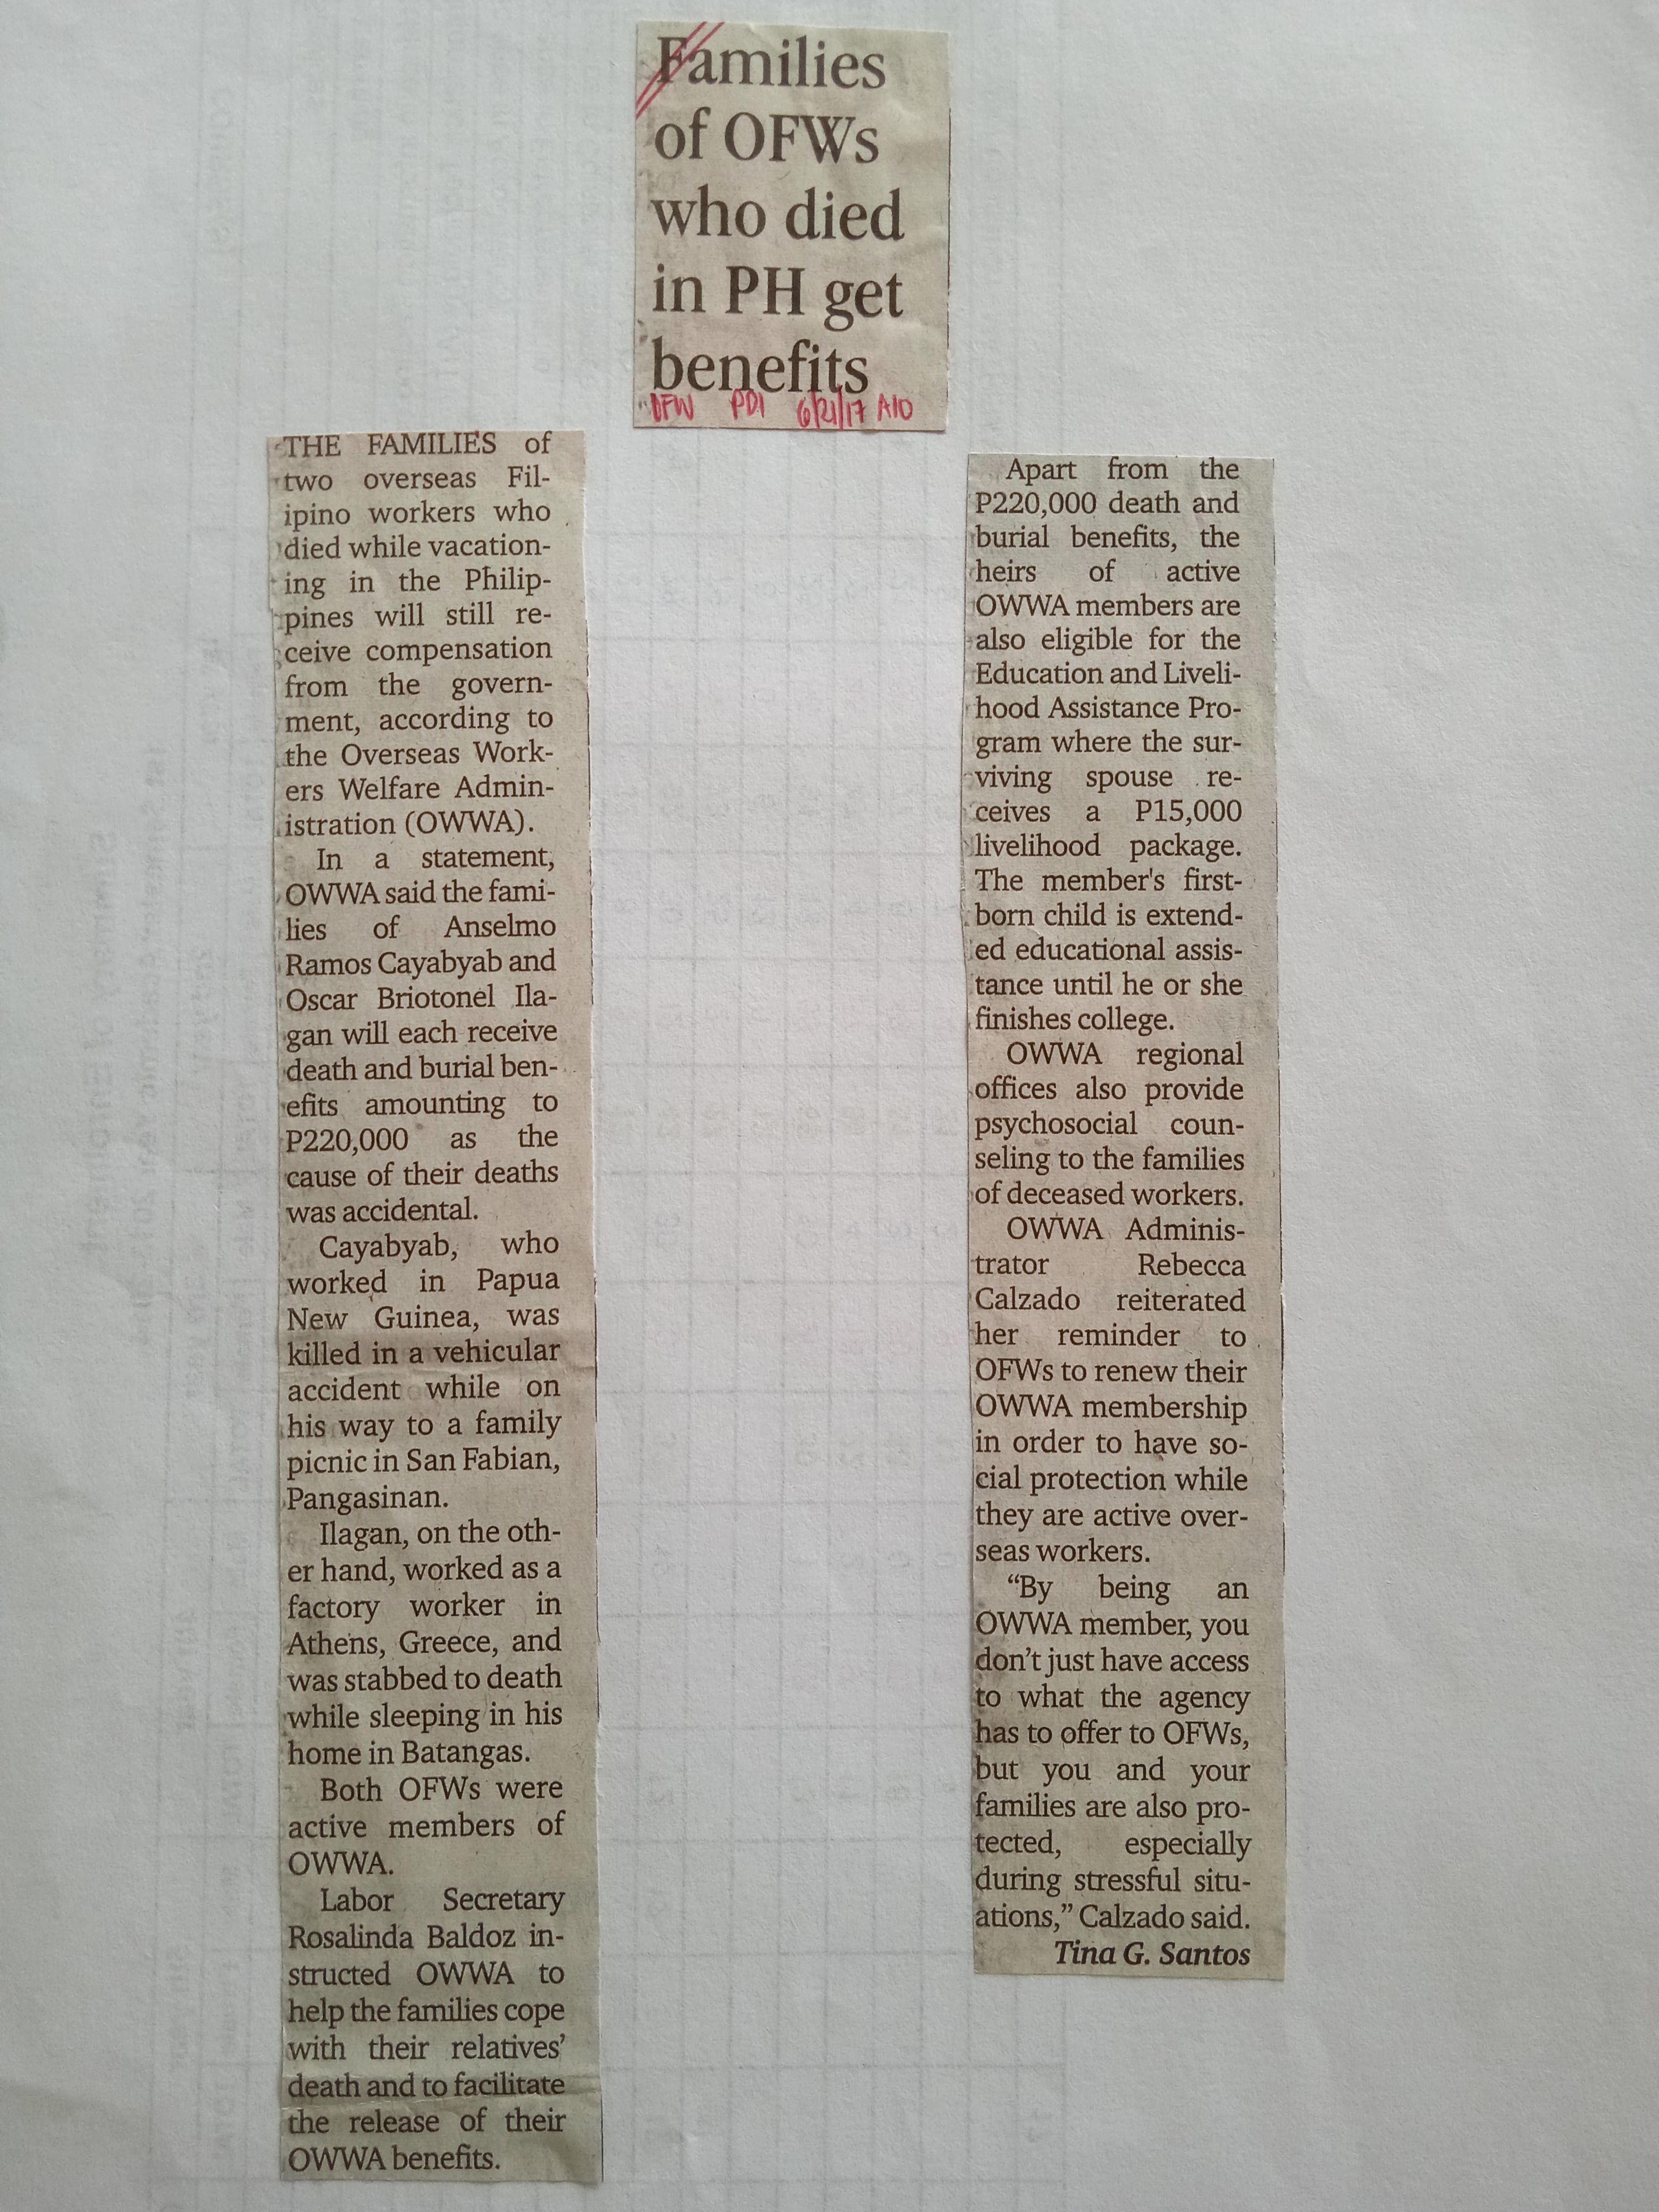 Families
of OFWs
who died
in PH get
benefits
OFW PDI 6/21/17 A10
THE FAMILIES of
two overseas Fil-
ipino workers who
died while vacation-
ing in the Philip-
pines will still re-
ceive compensation
from the govern-
ment, according to
the Overseas Work-
ers Welfare Admin-
istration (OWWA).
In a statement,
OWWA said the fami-
lies of Anselmo
Ramos Cayabyab and
Oscar Briotonel Ila-
gan will each receive
death and burial ben-
efits amounting to
P220,000 as the
cause of their deaths
was accidental.
Cayabyab, who
worked in Papua
New Guinea, was
killed in a vehicular
accident while on
his way to a family
picnic in San Fabian,
Pangasinan.
Ilagan, on the oth-
er hand, worked as a
factory worker in
Athens, Greece, and
was stabbed to death
while sleeping in his
home in Batangas.
Both OFWs were
active members of
OWWA.
Labor Secretary
Rosalinda Baldoz in-
structed OWWA to
help the families cope
with their relatives’
death and to facilitate
the release of their
OWWA benefits.
Apart from the
P220,000 death and
burial benefits, the
heirs of active
OWWA members are
also eligible for the
Education and Liveli-
hood Assistance Pro-
gram where the sur-
viving spouse re-
ceives a P15,000
livelihood package.
The member's first-
born child is extend-
ed educational assis-
tance until he or she
finishes college.
OWWA regional
offices also provide
psychosocial coun-
seling to the families
of deceased workers.
OWWA Adminis-
trator Rebecca
Calzado reiterated
her reminder to
OFWs to renew their
OWWA membership
in order to have so-
cial protection while
they are active over-
seas workers.
“By being an
OWWA member, you
don’t just have access
to what the agency
has to offer to OFWs,
but you and your
families are also pro-
tected, especially
during stressful situ-
ations,” Calzado said.
Tina G. Santos